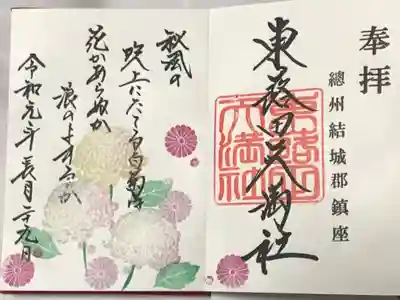 奉拝
總州結城郡鎮座
東蕗田天満社
東蕗田
天満社
秋風の
吹上にたてる白菊は
花かあらぬか
浪のよするか
令和元年 長月